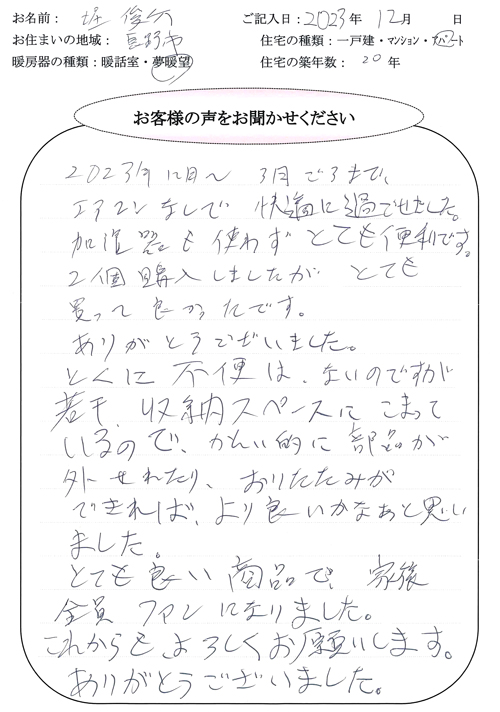 お名前： 堀 俊六 ご記入日：2023年 12月 日
お住まいの地域： 市 住宅の種類：一戸建・マンション・アパート
暖房器の種類：暖話室・夢暖望 住宅の築年数： 20 年
お客様の声をお聞かせください
2023年12月～ 3月ごろまで、
エアコンなしで 快適に過ごせました。
加湿器も使わず とても便利です。
2個購入しましたが とても
買って良かったです。
ありがとうございました。
とくに 不便は、ないのですが
若干、収納スペースに こまって
いるので、かんい的に 部品が
外せれたり、おりたたみが
できれば、より良いかなぁと思い
ました。
とても良い商品で、家族
全員 ファンになりました。
これからも よろしくお願いします。
ありがとうございました。